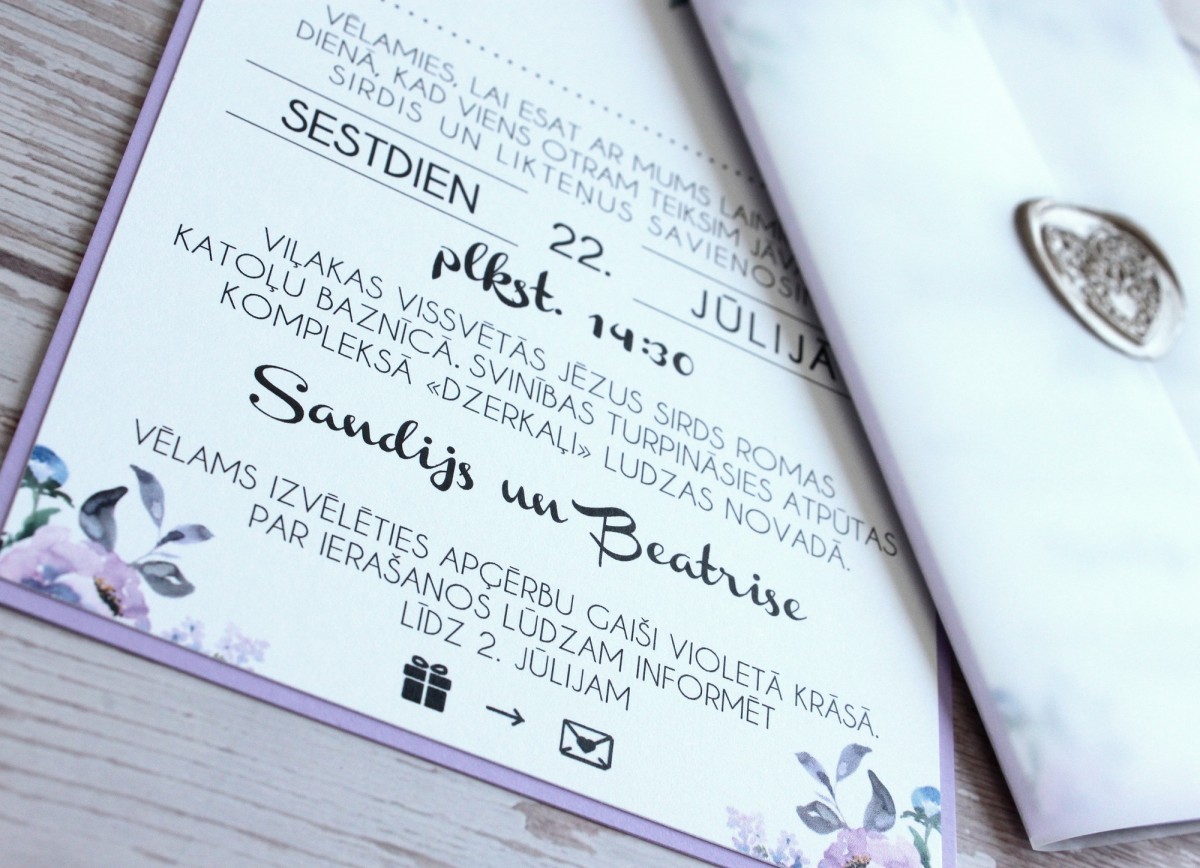 VĒLAMIES, LAI ESAT AR MUMS
DIENĀ, KAD VIENS OTRAM TEIKSIM
SIRDIS UN LIKTEŅUS
SESTDIEN 22. JŪLIJĀ
plkst. 14:30
VIĻAKAS VISSVĒTĀS JĒZUS SIRDS ROMAS
KATOĻU BAZNĪCĀ. SVINĪBAS TURPINĀSIES ATPŪTAS
KOMPLEKSĀ «DZERKAĻI» LUDZAS NOVADĀ.
Sandijs un Beatrise
VĒLAMS IZVĒLĒTIES APĢĒRBU GAIŠI VIOLETĀ KRĀSĀ.
PAR IERAŠANOS LŪDZAM INFORMĒT
LĪDZ 2. JŪLIJAM